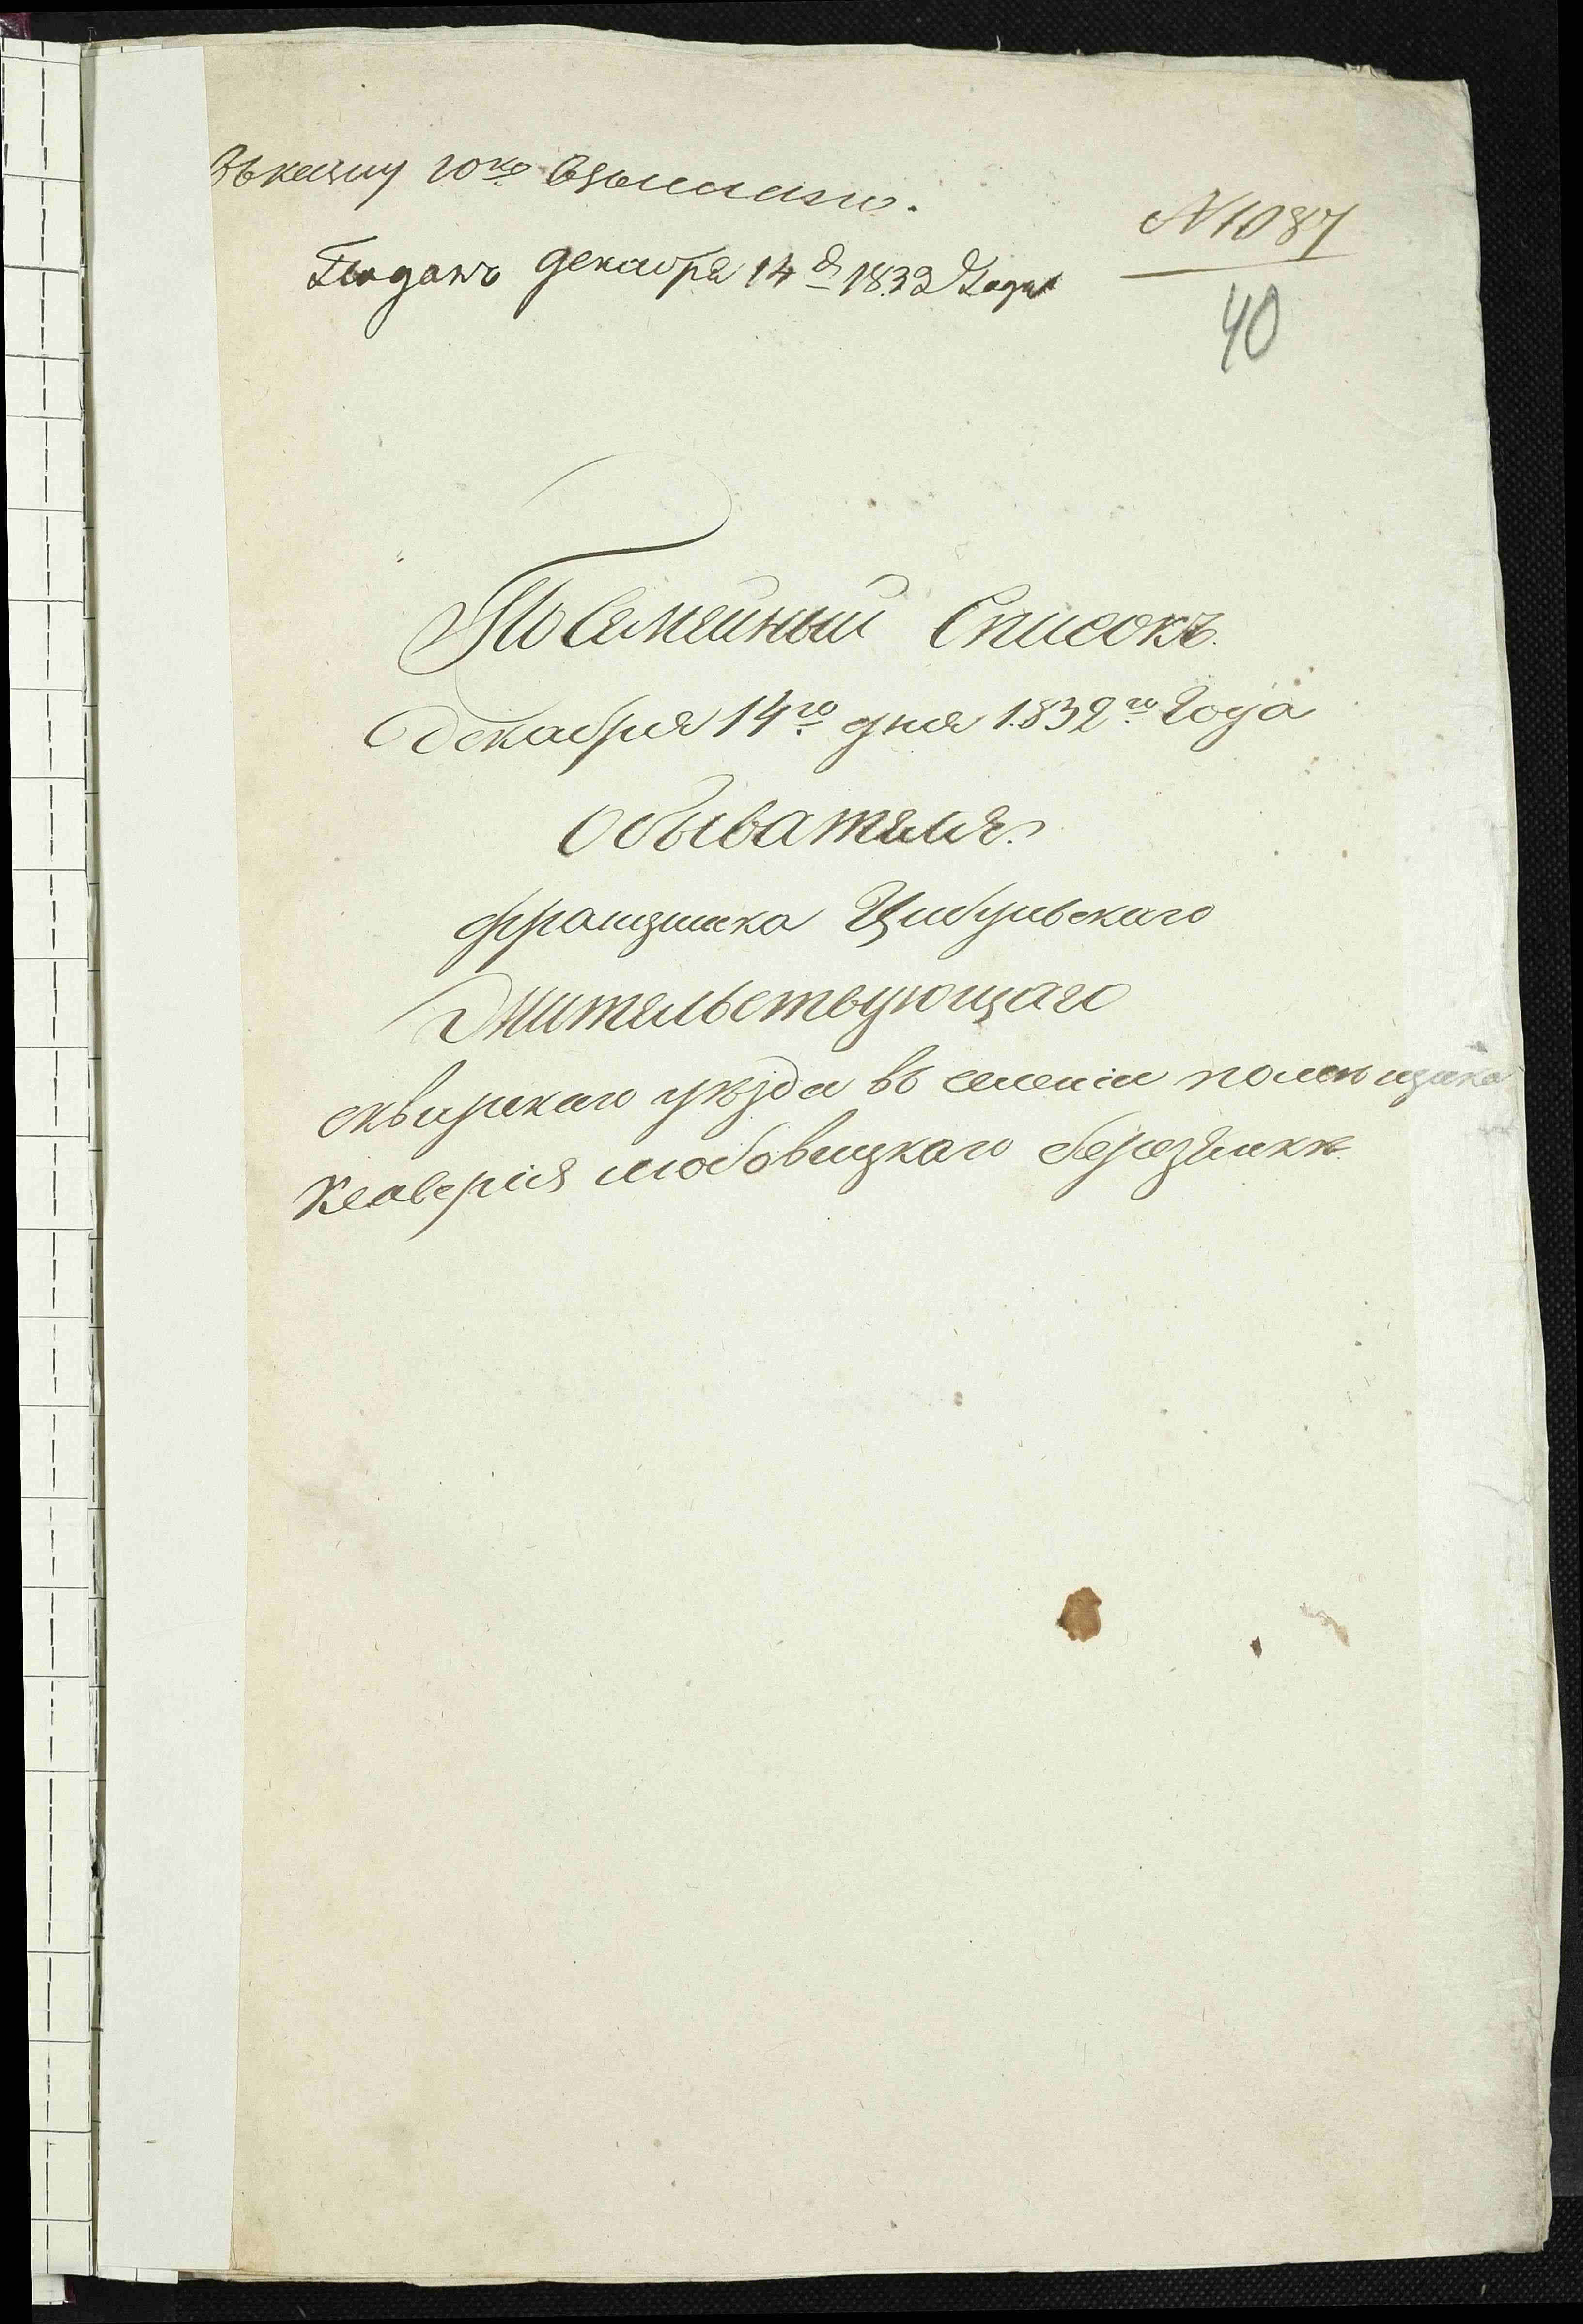 Поданъ декабря 14 д 1832 Года
N 1087
40
Посемейный Списокъ.
декабря 14го дня 1832го Года
Обывателя.
францишка Цибульскаго
Жительствующаго
сквирскаго уѣзда въ селеніи помѣщика
Ксаверія любовицкаго березянкѣ